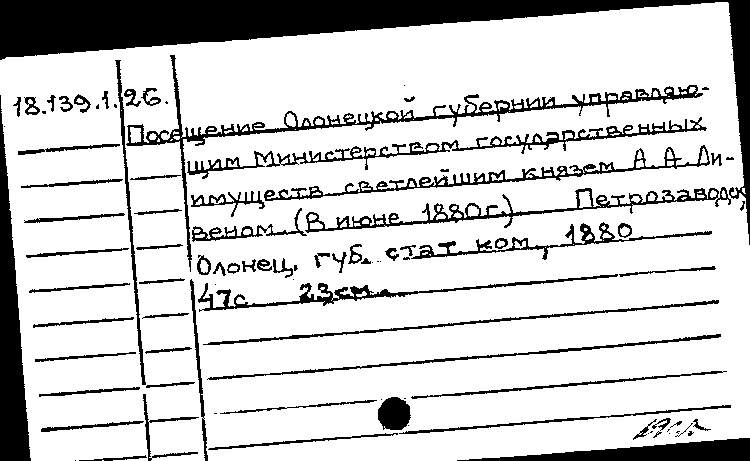 18.139.1.26.
Посещение Олонецкой губернии управляю-
щим Министерством государственных
имуществ светлейшим князем А.А. Ли-
веном. (В июне 1880г.) Петрозаводск,
Олонец. губ. стат. ком., 1880
47с. 23см.